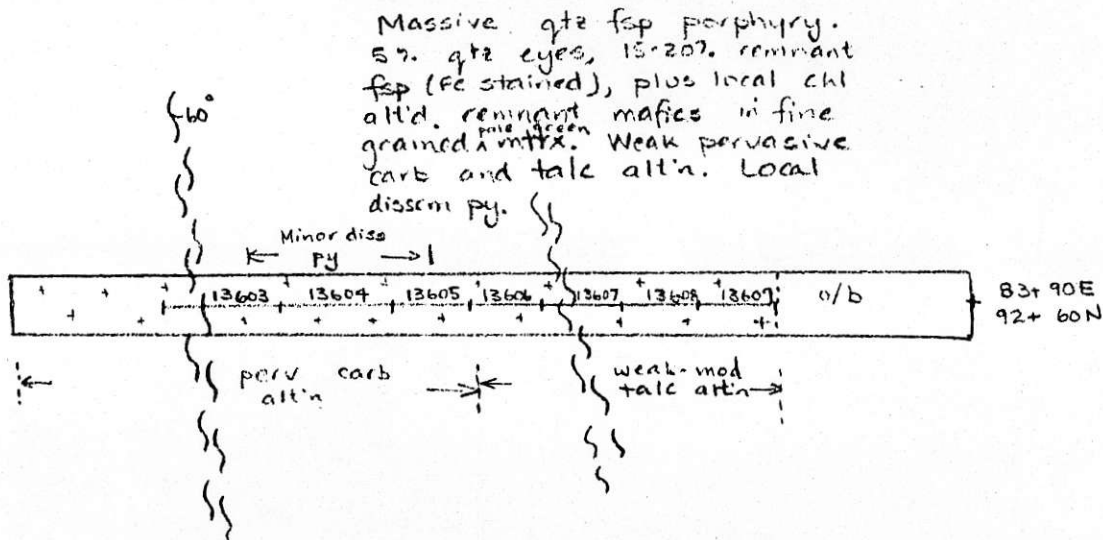 Massive qtz fsp porphyry.
5% qtz eyes, 15-20% remnant
fsp (Fe stained), plus local chl
alt'd. remnant mafics in fine
grained pale green mtrx. Weak pervasive
carb and talc alt'n. Local
dissem py.
60°
Minor diss
py
13603 13604 13605 13606 13607 13608 13609 o/b
83+90E
92+60N
perv carb
alt'n
weak-mod
talc alt'n